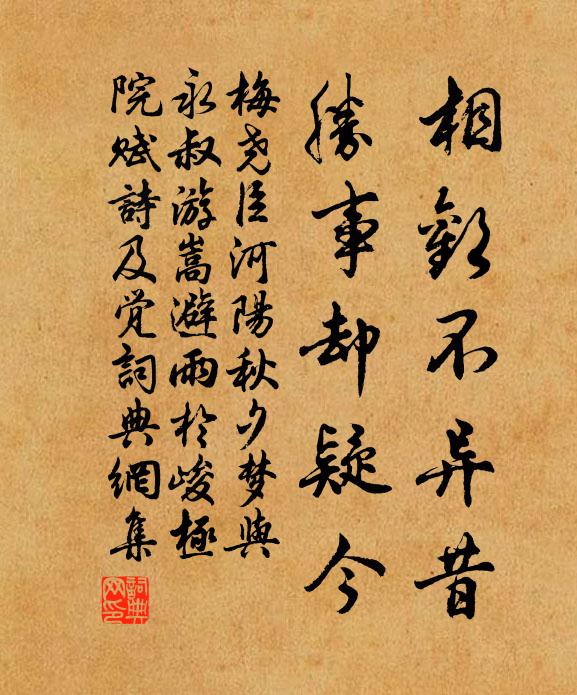 相歡不异昔
勝事却疑今
梅堯臣河陽秋夕梦與
永叔游嵩避雨於峻極
院賦詩及覺詞典網集
詞典
网印